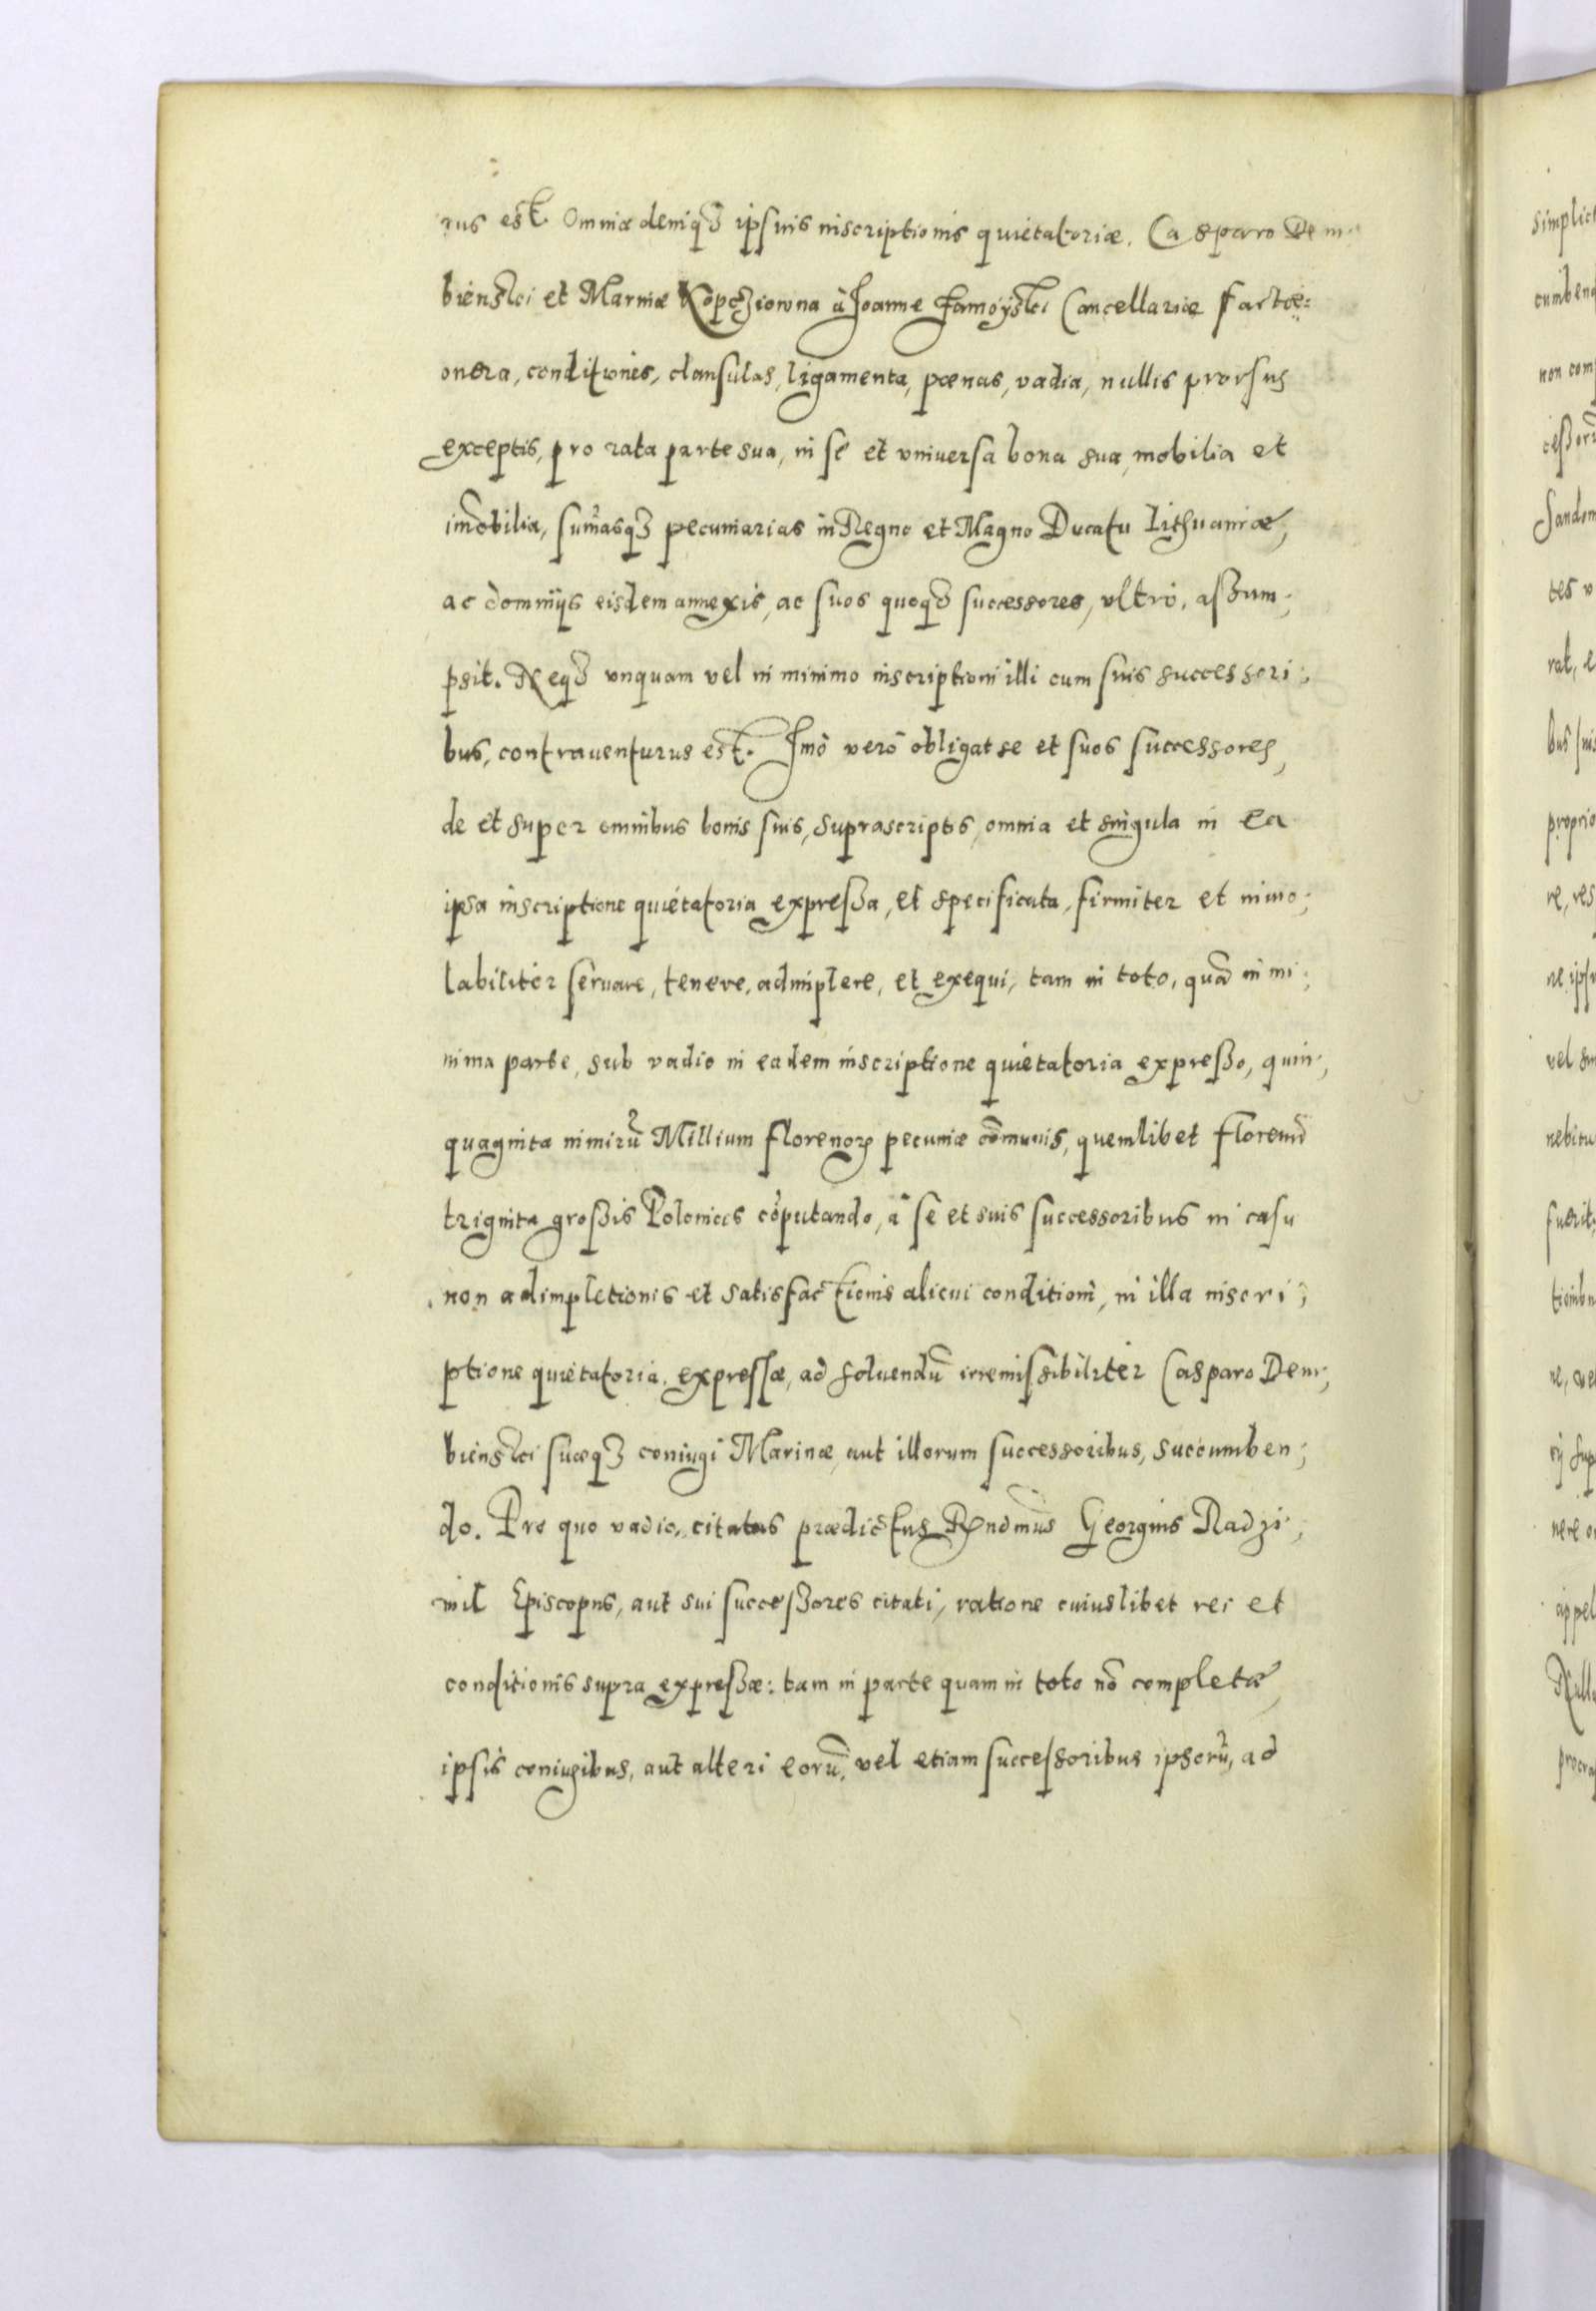 rus est. Omnia deniq₃ ipsius inscriptionis quietatoriæ, Casparo Dem;
bienski et Marinæ Kopcziowna à Joanne Zamoyski Cancellariæ factæ:
onera, conditiones, clausulas, ligamenta, pœnas, vadia, nullis prorsus
exceptis, pro rata parte sua, in se et vniuersa bona sua, mobilia et
im̃obilia, sum̃asq₃ pecuniarias in Regno et Magno Ducatu Lithuaniæ,
ac dominijs eisdem annexis, ac suos quoq₃ successores, vltrò, assum;
psit. Neq₃ vnquam vel in minimo inscriptioni illi cum suis successori;
bus, contrauenturus est. Imò verò obligat se et suos successores,
de et super omnibus bonis suis, suprascriptis, omnia et singula in ea
ipsa inscriptione quietatoria expressa, et specificata, firmiter et inuio;
labiliter seruare, tenere, adimplere, et exequi, tam in toto, quā in mi;
nima parte, sub vadio in eadem inscriptione quietatoria expresso, quin;
quaginta nimirū Millium florenoꝝ pecuniæ cōmunis, quemlibet florenū
triginta grossis Polonicis cōputando, à se et suis successoribus in casu
non adimpletionis et satisfactionis alicui conditioni, in illa inscri;
ptione quietatoria, expressæ, ad soluendū irremissibiliter Casparo Dem;
bienski suæq₃ coniugi Marinæ, aut illorum successoribus, succumben;
do. Pro quo vadio, citatus prædictus Rndmus Georgius Radzi;
uil Episcopus, aut sui successores citati, ratione cuiuslibet rei et
conditionis supra expressæ: tam in parte quam in toto nō completæ,
ipsis coniugibus, aut alteri eorū, vel etiam successoribus ipsorū, ad